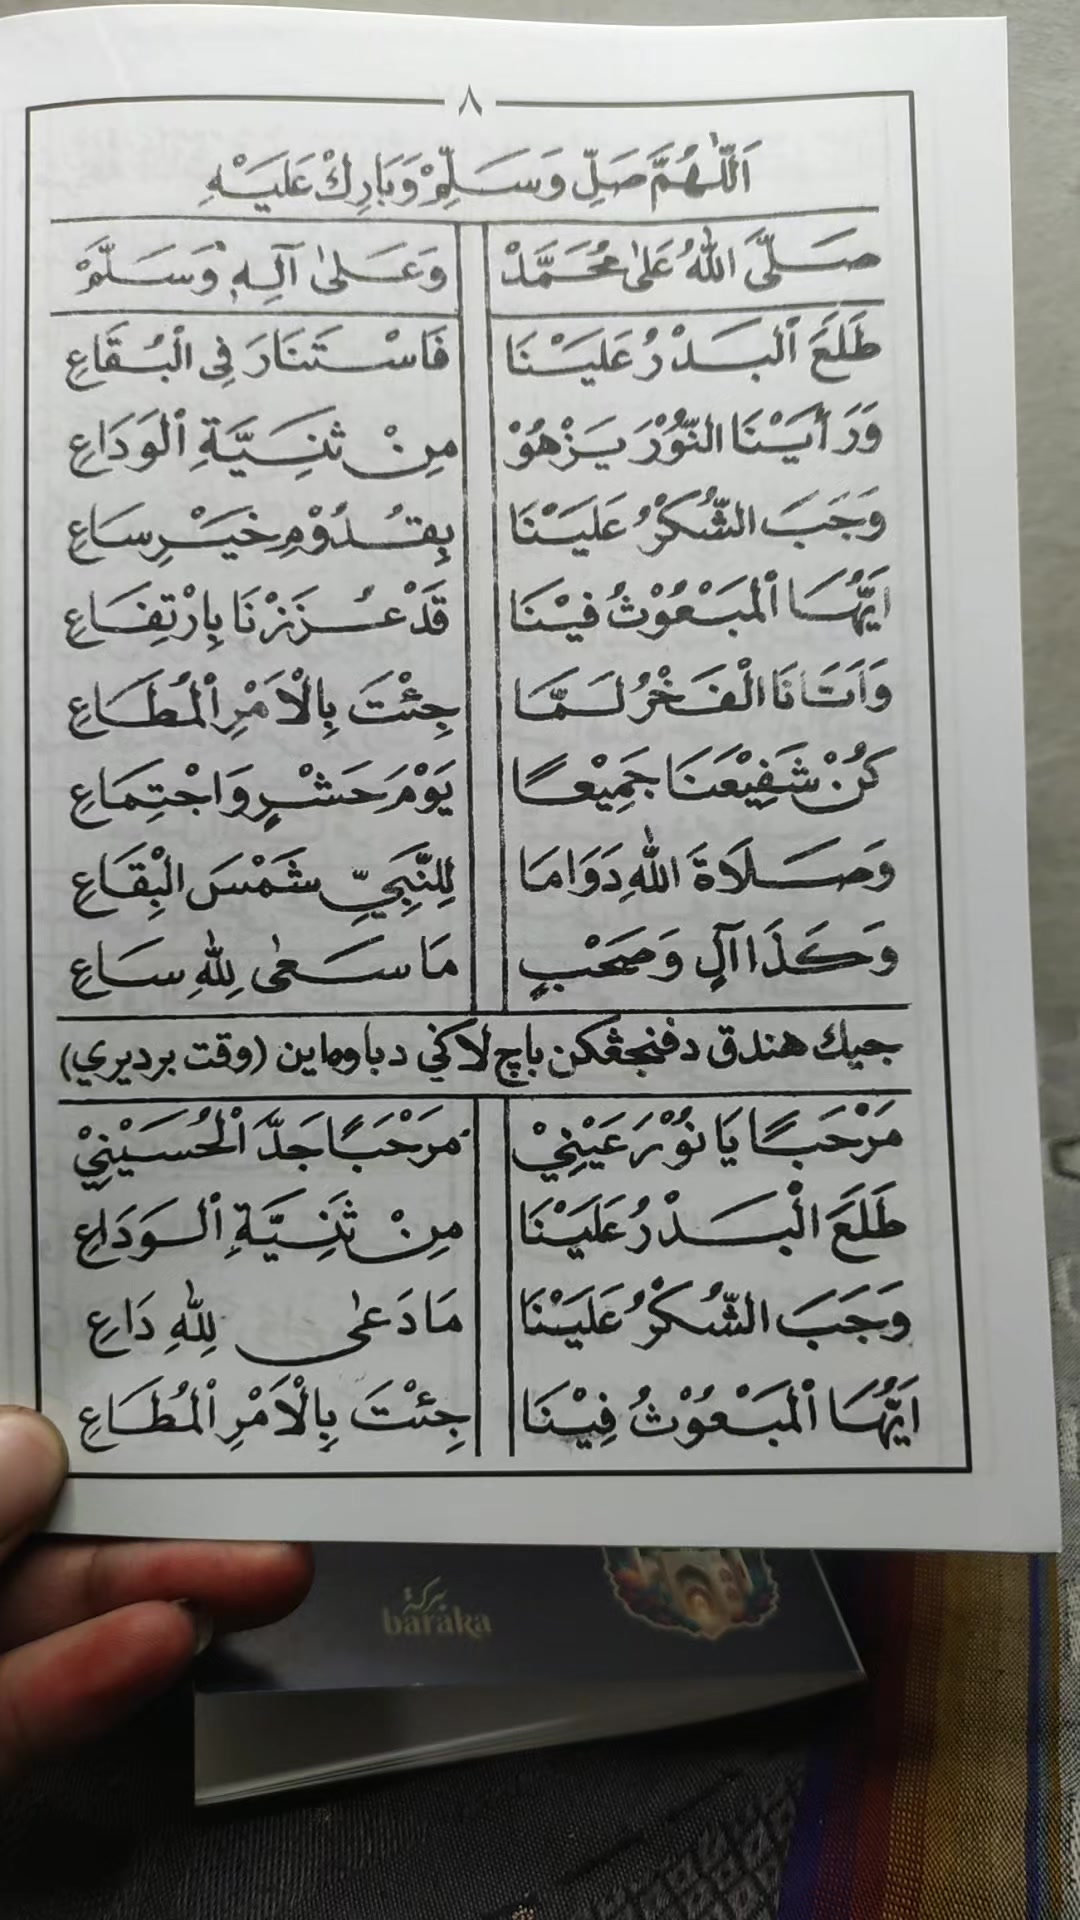 ٨
اَللّٰهُمَّ صَلِّ وَسَلِّمْ وَبَارِكْ عَلَيْهِ
صَلَّى اللّٰهُ عَلٰى مُحَمَّدْ وَعَلٰى آلِهٖ وَسَلَّمْ
طَلَعَ الْبَدْرُ عَلَيْنَا فَاسْتَنَارَ فِى الْبُقَاعِ
وَرَأَيْنَا النُّوْرَ يَزْهُوْ مِنْ ثَنِيَّةِ الْوَدَاعِ
وَجَبَ الشُّكْرُ عَلَيْنَا بِقُدُوْمِ خَيْرِ سَاعِ
اَيُّهَا الْمَبْعُوْثُ فِيْنَا قَدْ عُزِزْنَا بِارْتِفَاعِ
وَاَتَانَا الْفَخْرُ لَمَّا جِئْتَ بِالْاَمْرِ الْمُطَاعِ
كُنْ شَفِيْعَنَا جَمِيْعًا يَوْمَ حَشْرٍ وَاجْتِمَاعِ
وَصَلَاةَ اللّٰهِ دَوَامَا لِلنَّبِيِّ شَمْسَ الْبِقَاعِ
وَكَذَا آلٍ وَصَحْبٍ مَا سَعٰى لِلّٰهِ سَاعِ
جيك هندق دفنجڠكن باچ لاكي دباوهاين (وقت برديري)
مَرْحَبًا يَا نُوْرَ عَيْنِيْ مَرْحَبًا جَدَّ الْحُسَيْنِيْ
طَلَعَ الْبَدْرُ عَلَيْنَا مِنْ ثَنِيَّةِ الْوَدَاعِ
وَجَبَ الشُّكْرُ عَلَيْنَا مَا دَعٰى لِلّٰهِ دَاعِ
اَيُّهَا الْمَبْعُوْثُ فِيْنَا جِئْتَ بِالْاَمْرِ الْمُطَاعِ
بركة
baraka